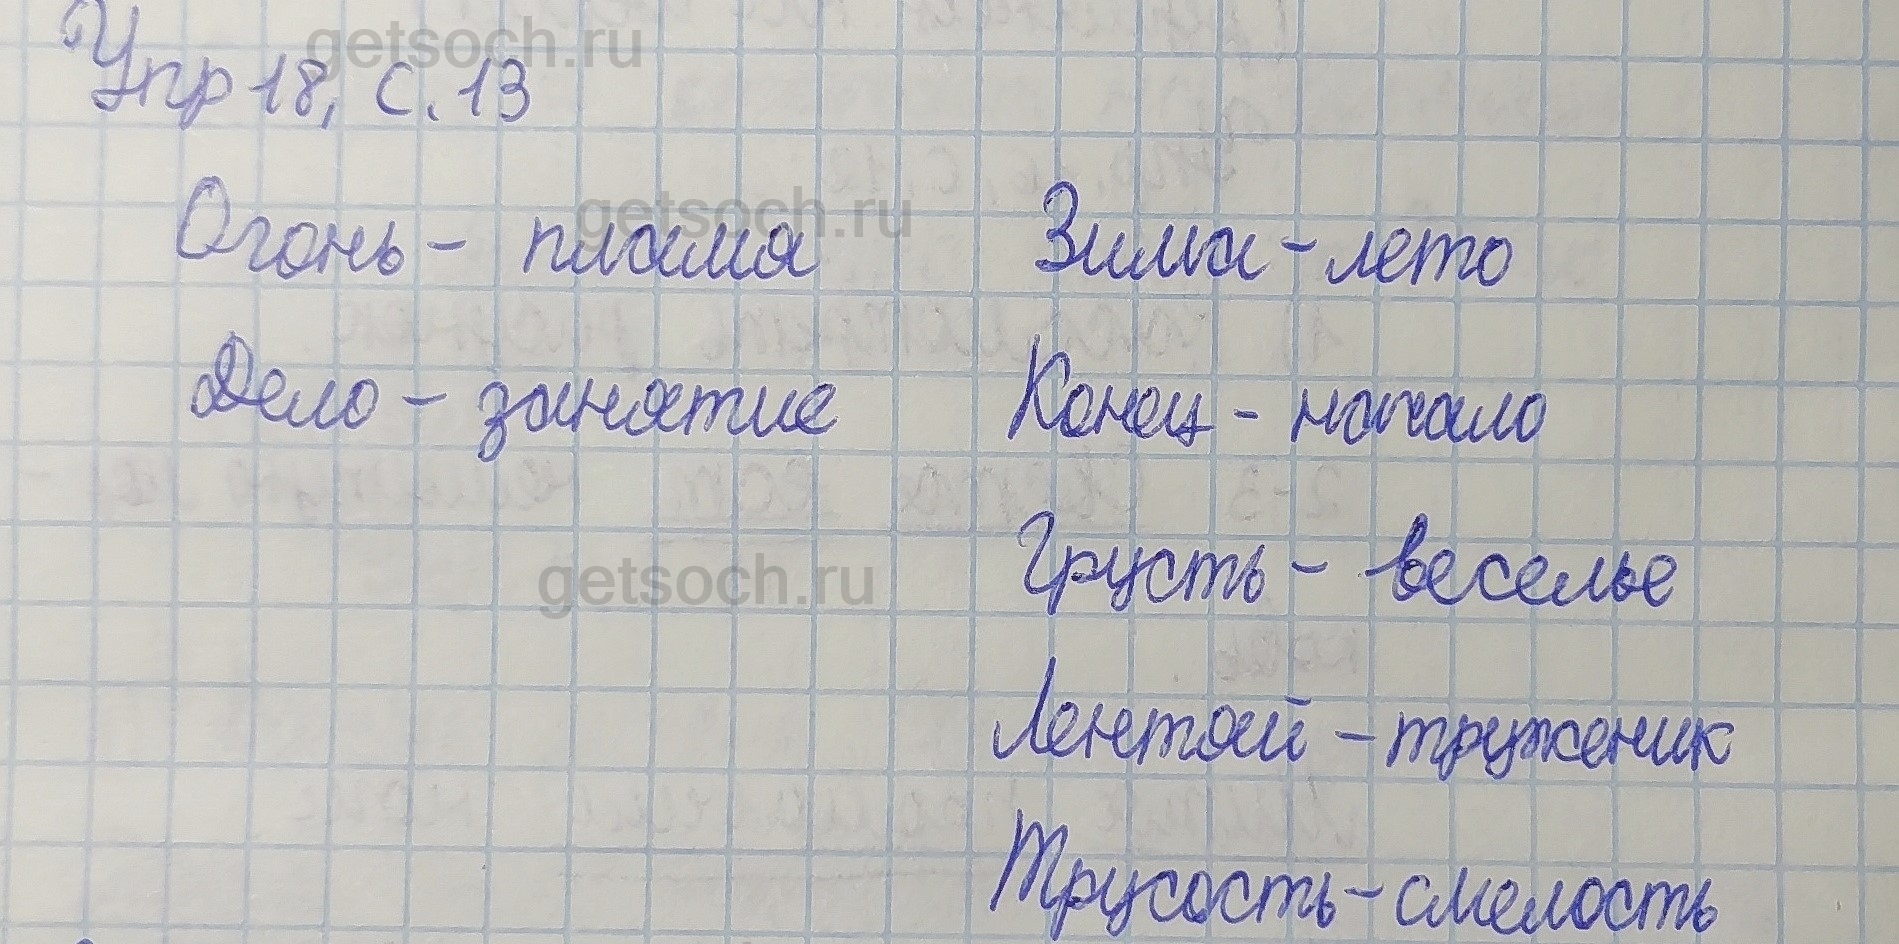 Упр 18, с. 13
getsoch.ru
getsoch.ru
Огонь - пламя
Зима - лето
Дело - занятие
Конец - начало
getsoch.ru
Грусть - веселье
Лентяй - труженик
Трусость - смелость